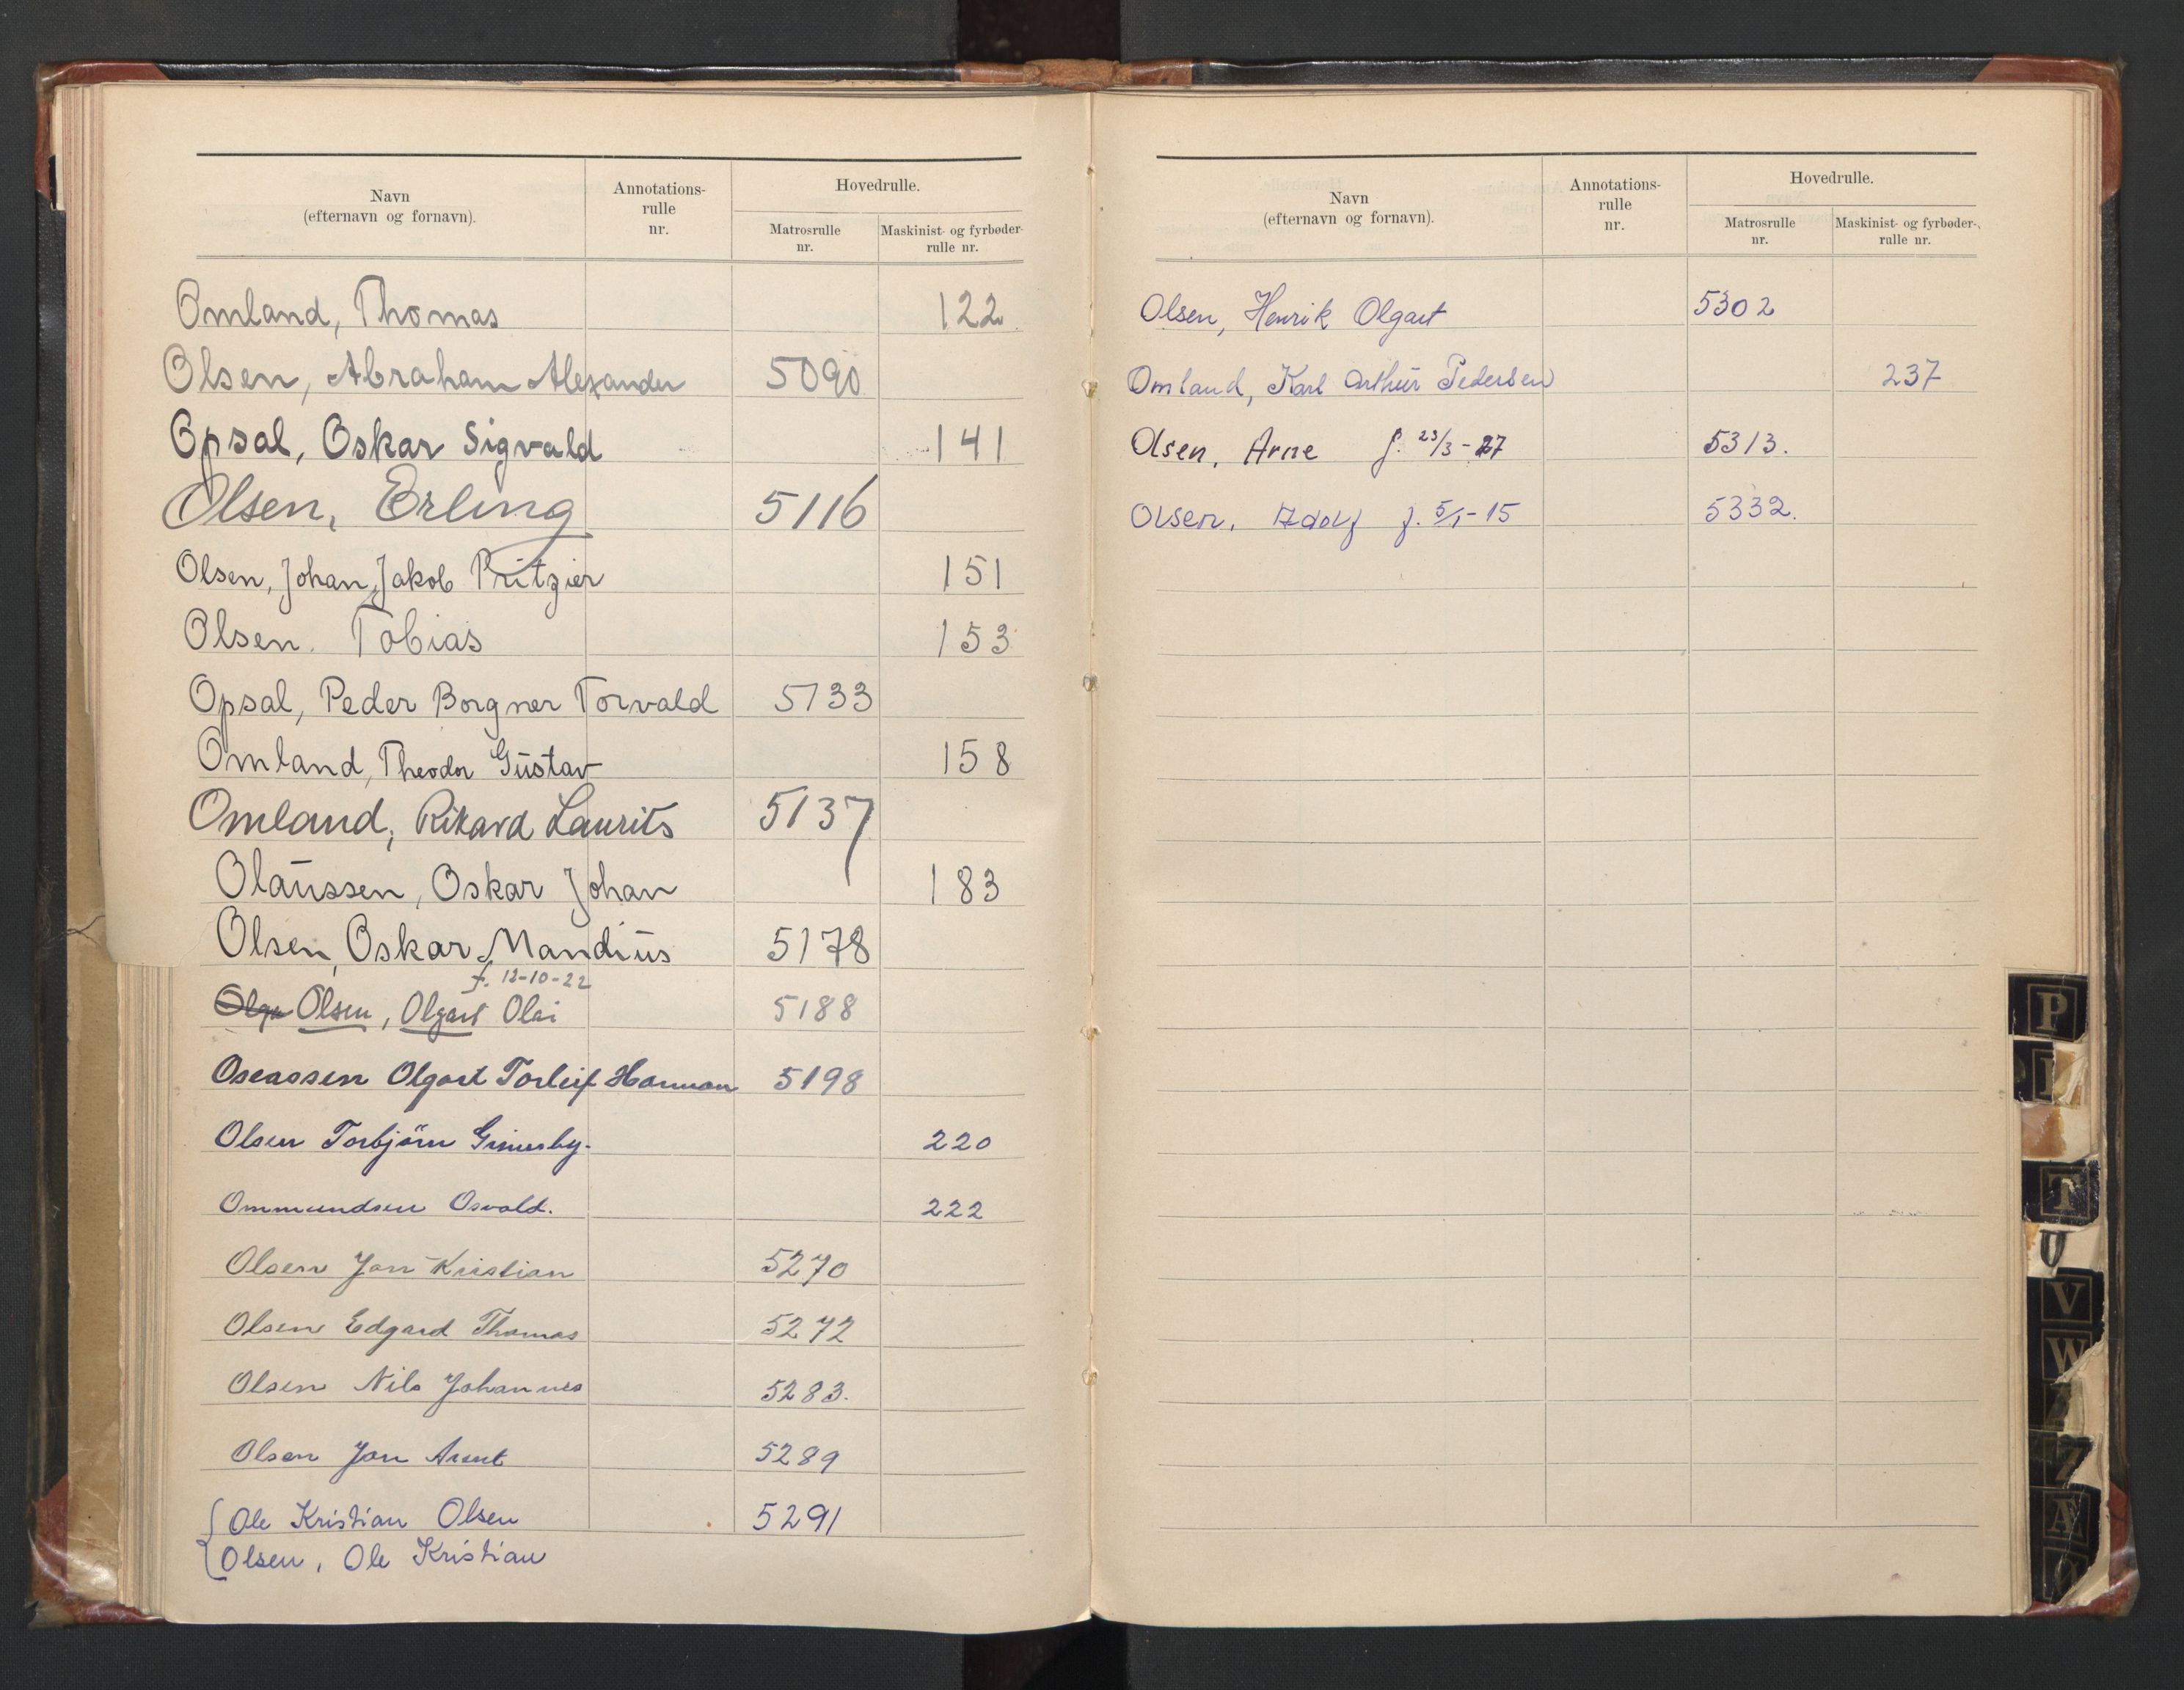 Navn
(efternavn og fornavn).
Annotations-
rulle
nr.
Hovedrulle.
Matrosrulle
nr.
Maskinist- og fyrbøder-
rulle nr.
Omland, Thomas 122
Olsen, Abraham Alexander 5090
Opsal, Oskar Sigvald 141
Olsen, Erling 5116
Olsen, Johan Jakob Pritzier 151
Olsen. Tobias 153
Opsal, Peder Borgner Torvald 5133
Omland, Theodor Gustav 158
Omland, Rikard Laurits 5137
Olaussen, Oskar Johan 183
Olsen, Oskar Mandius 5178
f. 12-10-22
Olga Olsen, Olgart Olai 5188
Oseassen Olgart Torleif Herman 5198
Olsen Torbjörn Grimsby. 220
Ommundsen Osvald. 222
Olsen Jan Kristian 5270
Olsen Edgard Thomas 5272
Olsen Nils Johannes 5283.
Olsen Jan Arent 5289
Ole Kristian Olsen 5291
Olsen, Ole Kristian
Navn
(efternavn og fornavn).
Annotations-
rulle
nr.
Hovedrulle.
Matrosrulle
nr.
Maskinist- og fyrbøder-
rulle nr.
Olsen, Henrik Olgart 5302
Omland, Karl Arthur Pedersen 237
Olsen, Arne f. 23/3-27 5313.
Olsen, Adolf f. 5/1-15 5332.
P
T
U
V
W
Z
A